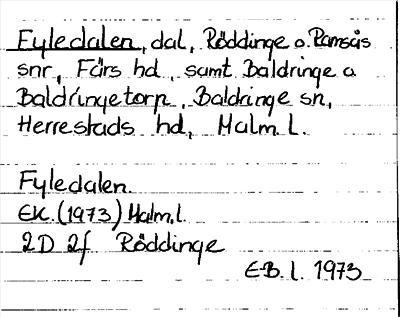 Fyledalen, dal, Röddinge o. Ramsås
snr, Färs hd, samt Baldringe o
Baldringetorp, Baldringe sn,
Herrestads hd, Malm. l.
Fyledalen.
EK. (1973) Malm. l.
2D 2f Röddinge
E.B. l. 1973